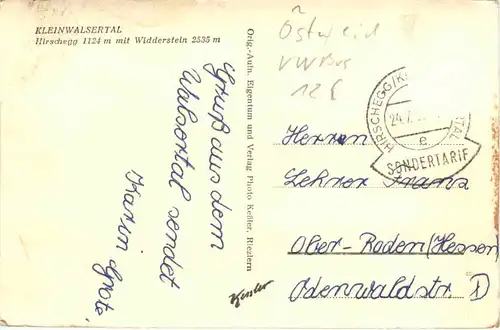 KLEINWALSERTAL
Hirschegg 1124 m mit Widderstein 2535 m
Gruß aus dem
Walsertal sendet
Karin Grote.
Orig.-Aufn. Eigentum und Verlag Photo Keßler, Riezlern
Kessler
VW Bus
12 €
HIRSCHEGG/K TAL
24.7.
e
SONDERTARIF
Herren
Lehrer Franz
Ober-Roden (Hessen)
Odenwaldstr. 1